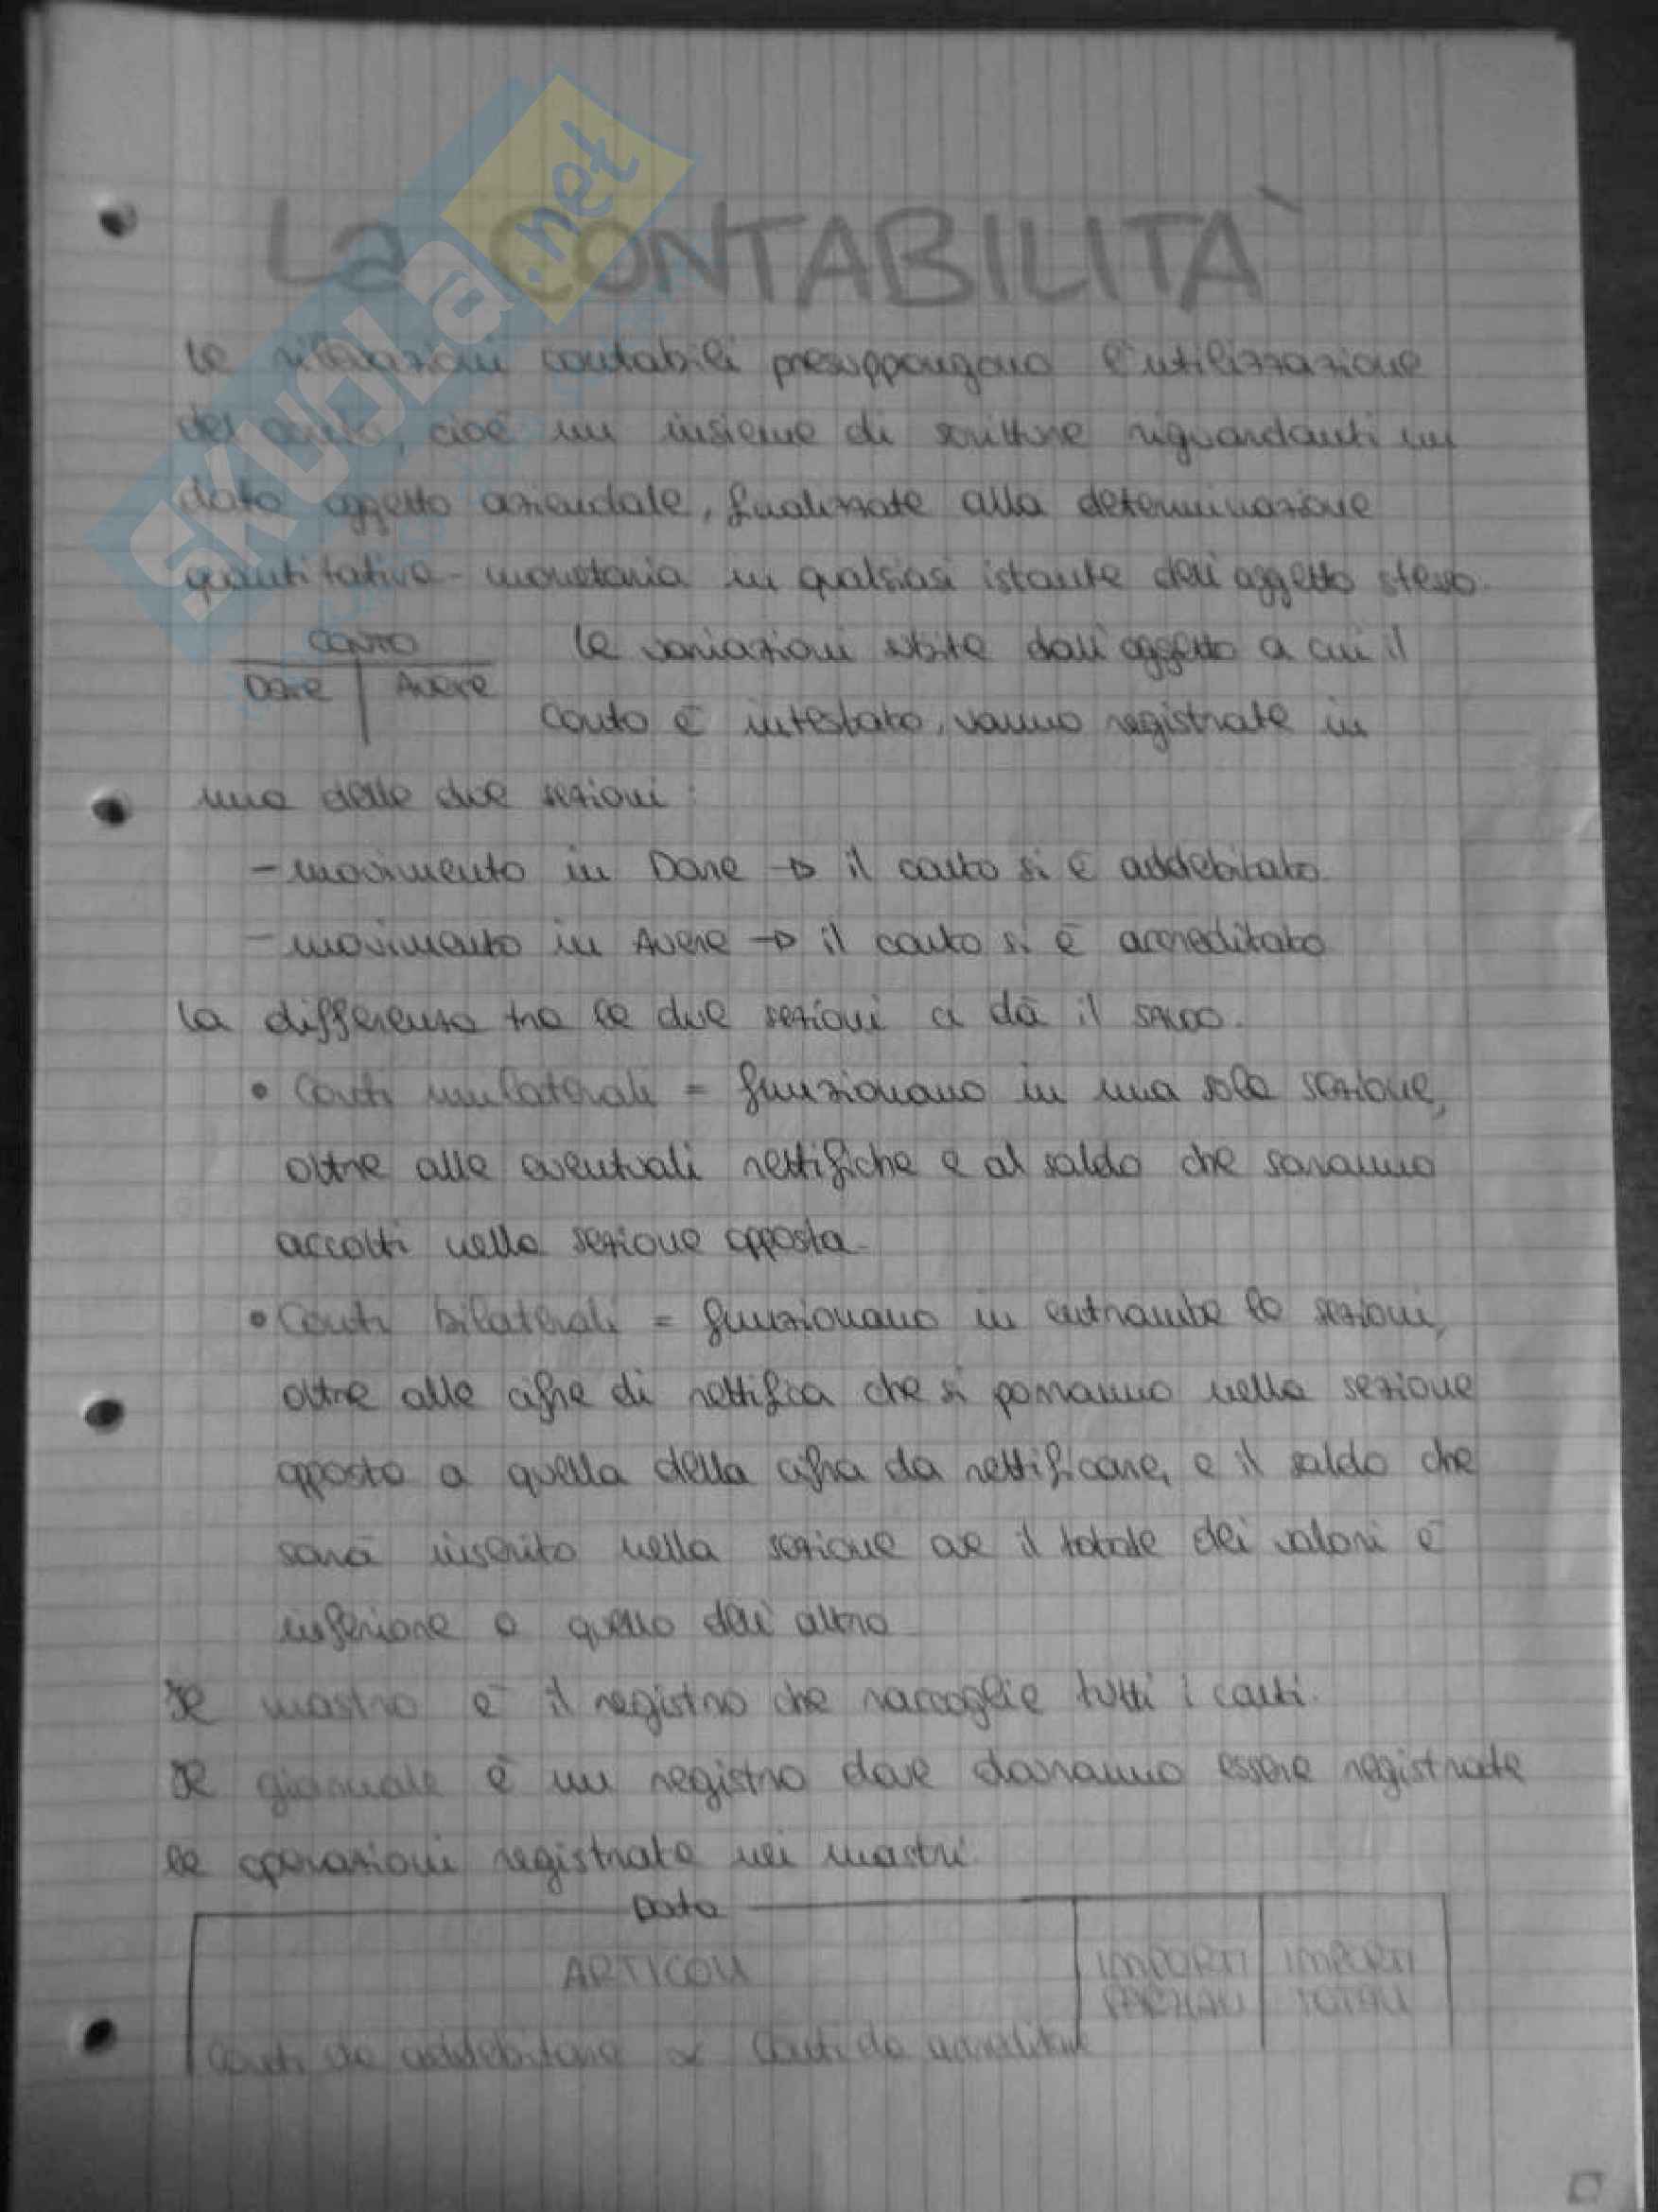 SKUOLA.net
La CONTABILITÀ
Le rilevazioni contabili presuppongono l'utilizzazione
del conto, cioè un insieme di scritture riguardanti un
dato oggetto aziendale, finalizzate alla determinazione
quantitativa-monetaria in qualsiasi istante dell'oggetto stesso.
CONTO
Dare Avere
Le variazioni subite dall'oggetto a cui il
conto è intestato, vanno registrate in
una delle due sezioni:
- movimento in Dare → il conto si è addebitato
- movimento in Avere → il conto si è accreditato
La differenza tra le due sezioni ci dà il SALDO.
• Conti unilaterali = funzionano in una sola sezione,
oltre alle eventuali rettifiche e al saldo che saranno
accolti nella sezione opposta.
• Conti bilaterali = funzionano in entrambe le sezioni,
oltre alle cifre di rettifica che si porranno nella sezione
opposta a quella della cifra da rettificare, e il saldo che
sarà inserito nella sezione ove il totale dei valori è
inferiore a quello dell'altro
Il mastro è il registro che raccoglie tutti i conti.
Il giornale è un registro dove dovranno essere registrate
le operazioni registrate nei mastri.
Data
ARTICOLI
IMPORTI PARZIALI
IMPORTI TOTALI
Conti da addebitare a Conti da accreditare